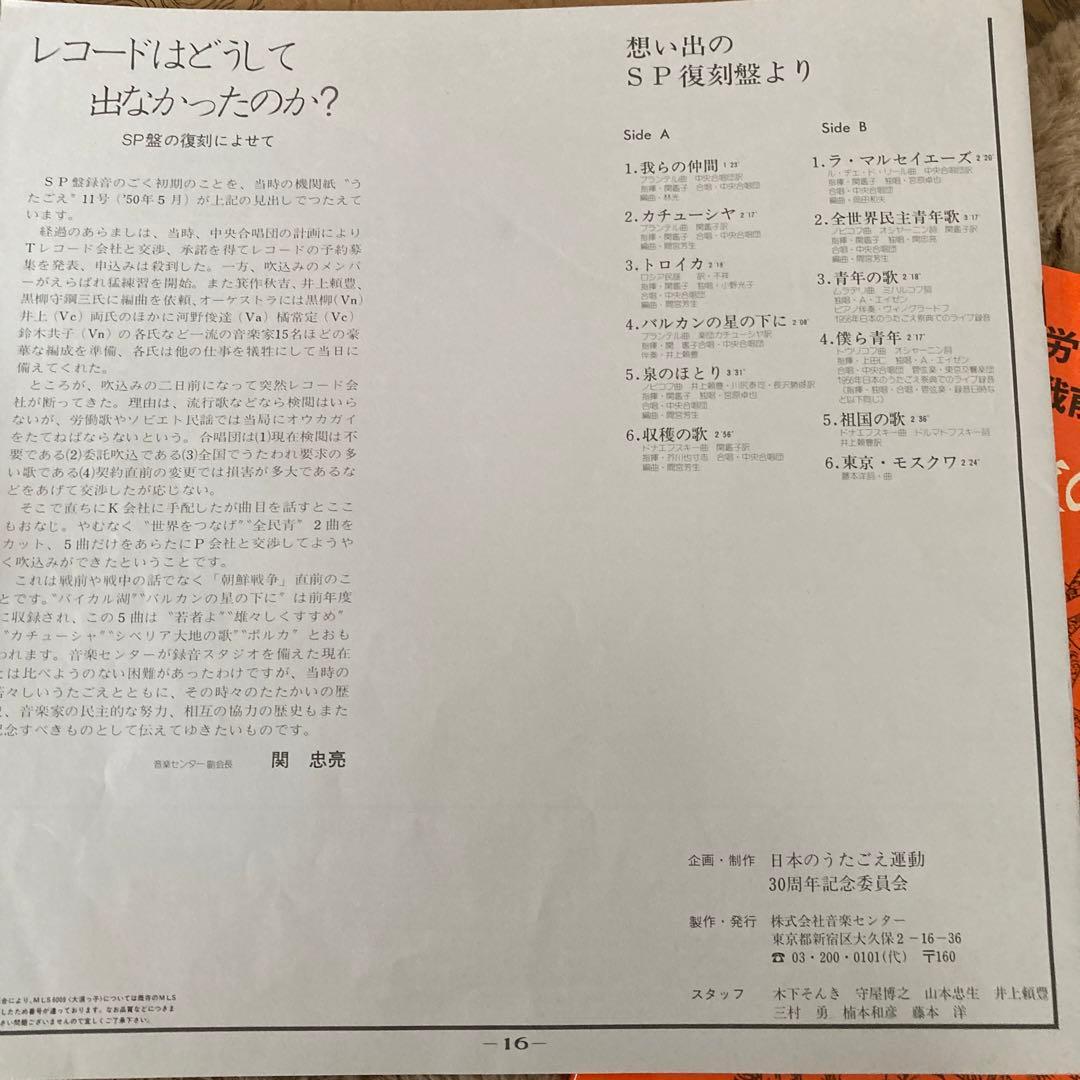 レコードはどうして
出なかったのか？
SP盤の復刻によせて
SP盤録音のごく初期のことを、当時の機関紙〝う
たごえ〟11号('50年5月)が上記の見出しでつたえて
います。
経過のあらましは、当時、中央合唱団の計画により
Tレコード会社と交渉、承諾を得てレコードの予約募
集を発表、申込みは殺到した。一方、吹込みのメンバ
ーがえらばれ猛練習を開始。また箕作秋吉、井上頼豊、
黒柳守鋼三氏に編曲を依頼、オーケストラには黒柳(Vn)
井上(Vc)両氏のほかに河野俊達(Va)橘常定(Vc)
鈴木共子(Vn)の各氏など一流の音楽家15名ほどの豪
華な編成を準備、各氏は他の仕事を犠牲にして当日に
備えてくれた。
ところが、吹込みの二日前になって突然レコード会
社が断ってきた。理由は、流行歌などなら検閲はいら
ないが、労働歌やソビエト民謡では当局にオウカガイ
をたてねばならないという。合唱団は(1)現在検閲は不
要である(2)委託吹込である(3)全国でうたわれ要求の多
い歌である(4)契約直前の変更では損害が多大であるな
どをあげて交渉したが応じない。
そこで直ちにK会社に手配したが曲目を話すとここ
もおなじ。やむなく〝世界をつなげ〟〝全民青〟2曲を
カット、5曲だけをあらたにP会社と交渉してようや
く吹込みができたということです。
これは戦前や戦中の話でなく「朝鮮戦争」直前のこ
とです。〝バイカル湖〟〝バルカンの星の下に〟は前年度
に収録され、この5曲は〝若者よ〟〝雄々しくすすめ〟
〝カチューシャ〟〝シベリア大地の歌〟〝ポルカ〟とおも
われます。音楽センターが録音スタジオを備えた現在
とは比べようのない困難があったわけですが、当時の
若々しいうたごえとともに、その時々のたたかいの歴
史、音楽家の民主的な努力、相互の協力の歴史もまた
記念すべきものとして伝えてゆきたいものです。
音楽センター副会長 関 忠亮
想い出の
SP復刻盤より
Side A
1.我らの仲間 1'23"
ブランテル曲 中央合唱団訳
指揮・関鑑子 合唱・中央合唱団
編曲・林光
2.カチューシヤ 2'17"
ブランテル曲 関鑑子訳
指揮・関鑑子 合唱・中央合唱団
編曲・間宮芳生
3.トロイカ 2'18"
ロシア民謡 訳・不祥
指揮・関鑑子 独唱・小野光子
合唱・中央合唱団
編曲・間宮芳生
4.バルカンの星の下に 2'08"
ブランテル曲 楽団カチューシヤ訳
指揮・関 鑑子 合唱・中央合唱団
伴奏・井上頼豊
5.泉のほとり 3'31"
ノビコフ曲 井上頼豊・川尻泰司・長沢勝俊訳
指揮・関鑑子 独唱・宮原卓也
合唱・中央合唱団
6.収穫の歌 2'56"
ドナエフスキー曲 関鑑子訳
指揮・芥川也寸志 合唱・中央合唱団
編曲・間宮芳生
Side B
1.ラ・マルセイエーズ 2'20"
ル・ヂェ・ド・リール曲 中央合唱団訳
指揮・関鑑子 独唱・宮原卓也
合唱・中央合唱団
編曲・岡田和夫
2.全世界民主青年歌 3'17"
ノビコフ曲 オシャーニン詞 関鑑子訳
指揮・関鑑子 独唱・関忠亮
合唱・中央合唱団
編曲・間宮芳生
3.青年の歌 2'18"
ムラデリ曲 ミハルコフ詞
独唱・A・エイゼン
ピアノ伴奏・ヴィングラードフ
1956年日本のうたごえ祭典でのライブ録音
4.僕ら青年 2'11"
トウリコフ曲 オシャーニン詞
指揮・上田仁 独唱・A・エイゼン
合唱・中央合唱団 管弦楽・東京交響楽団
1956年日本のうたごえ祭典でのライブ録音
(指揮・独唱・合唱・管弦楽・録音日時な
ど以下同じ)
5.祖国の歌 2'36"
ドナエフスキー曲 ドルマトフスキー詞
井上頼豊訳
6.東京・モスクワ 2'24"
藤本洋詞・曲
企画・制作 日本のうたごえ運動
30周年記念委員会
製作・発行 株式会社音楽センター
東京都新宿区大久保2-16-36
☎ 03・200・0101(代) 〒160
スタッフ 木下そんき 守屋博之 山本忠生 井上頼豊
三村 勇 楠本和彦 藤本 洋
合により、MLS6009〈大須っ子〉については既存のMLS
したため番号が違っております。なお品質などにつきま
さい問題ございませんので宜しくご了承下さい。
－16－
労
戦前